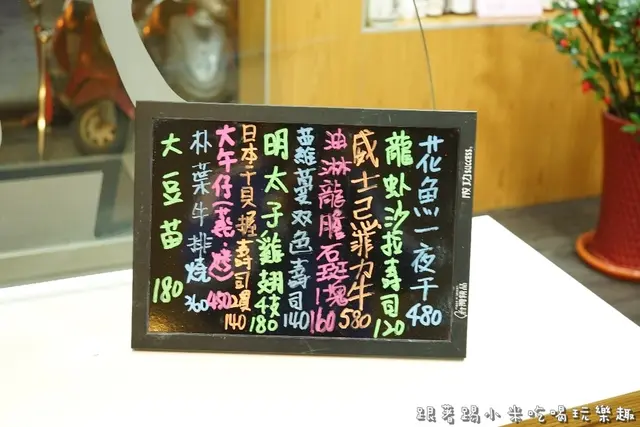 花魚一夜干 480
龍虾沙拉壽司 120
威士己菲力牛 580
油淋龍膽石斑1塊 160
蘿蔓双色壽司 140
明太子雞翅4枝 180
日本干貝握壽司2貫 140
大午仔(蒸、燒) 450
朴葉牛排燒 360
大豆苗 180
成功 success.
跟著踢小米吃喝玩樂趣